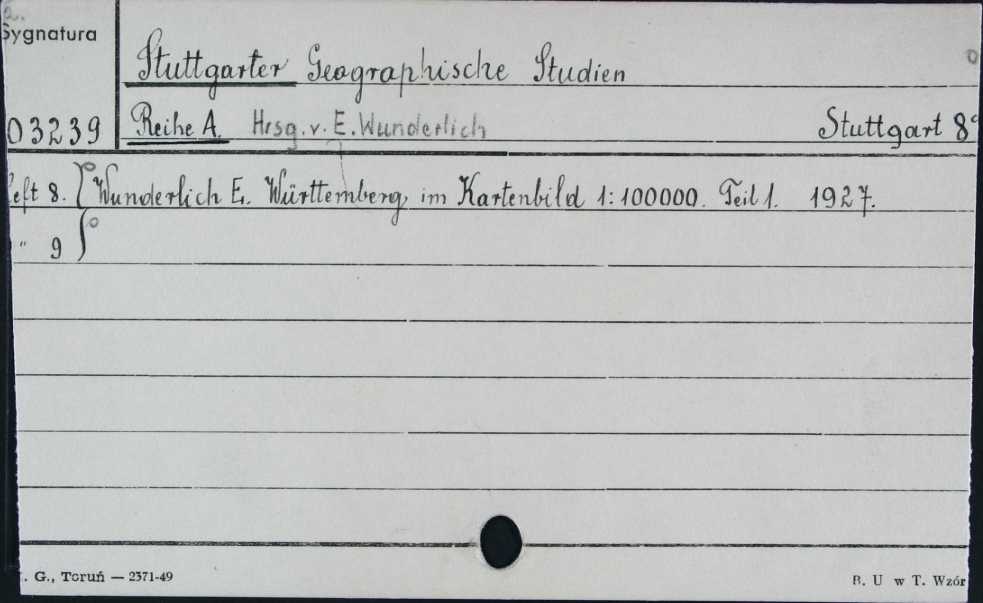 Sygnatura
Stuttgarter Geographische Studien
03239 Reihe A. Hrsg. v. E. Wunderlich Stuttgart 8°
Heft 8. Wunderlich E. Württemberg im Kartenbild 1:100000. Teil 1. 1927.
" 9
G., Toruń — 2371-49 B. U w T. Wzór